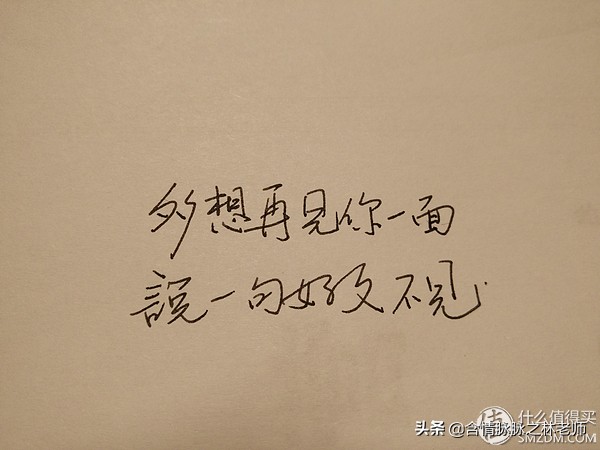 多想再见你一面
說一句好久不见.
值 什么值得买
SMZDM.COM
头条 @含情脉脉之林老师